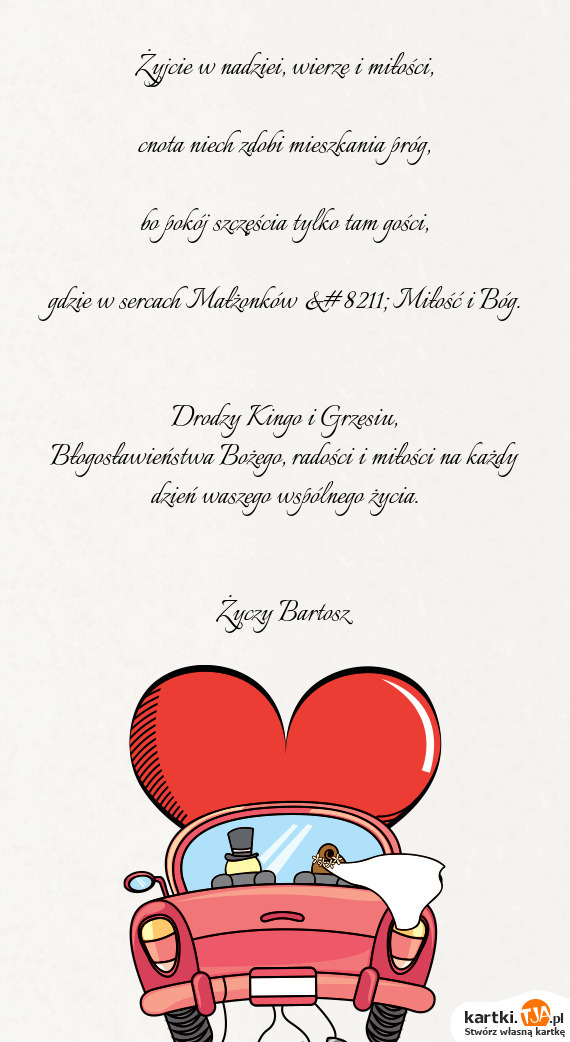 Żyjcie w nadziei, wierze i miłości,
cnota niech zdobi mieszkania próg,
bo pokój szczęścia tylko tam gości,
gdzie w sercach Małżonków &#8211; Miłość i Bóg.
Drodzy Kingo i Grzesiu,
Błogosławieństwa Bożego, radości i miłości na każdy
dzień waszego wspólnego życia.
Życzy Bartosz
kartki.TJA.pl
Stwórz własną kartkę